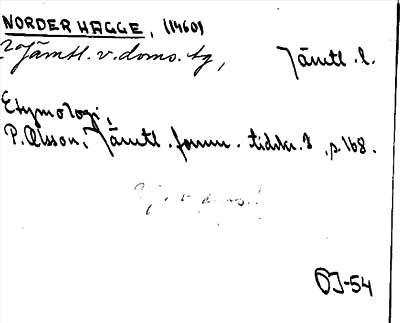 NORDERHAGGE, (1460)
Jämtl. v. doms. tg, Jämtl. l.
Etymologi,
P. Olsson, Jämtl. fornm. tidskr. 3, s. 168.
OJ-54